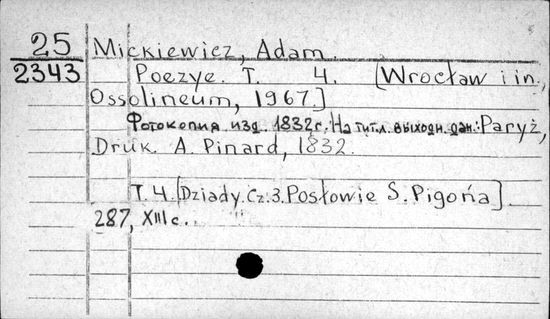 25 Mickiewicz, Adam.
2343 Poezye. T. 4. [Wrocław i in.,
Ossolineum, 1967.]
Фотокопия изд. 1832 г. На тит. л. выходн. дан.: Paryż,
Druk. A. Pinard, 1832.
T. 4. [Dziady. Cz. 3. Posłowie S. Pigońa].
287, XIII с.